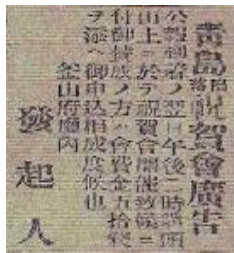 青島陷落祝賀會廣告
公報到着ノ翌日午後二時龍頭
山上ニ於テ祝賀會開催致候ニ
付御賛成ノ方ハ會費金五拾錢
ヲ添ヘ御申込相成度候也
釜山府廳内
發起人